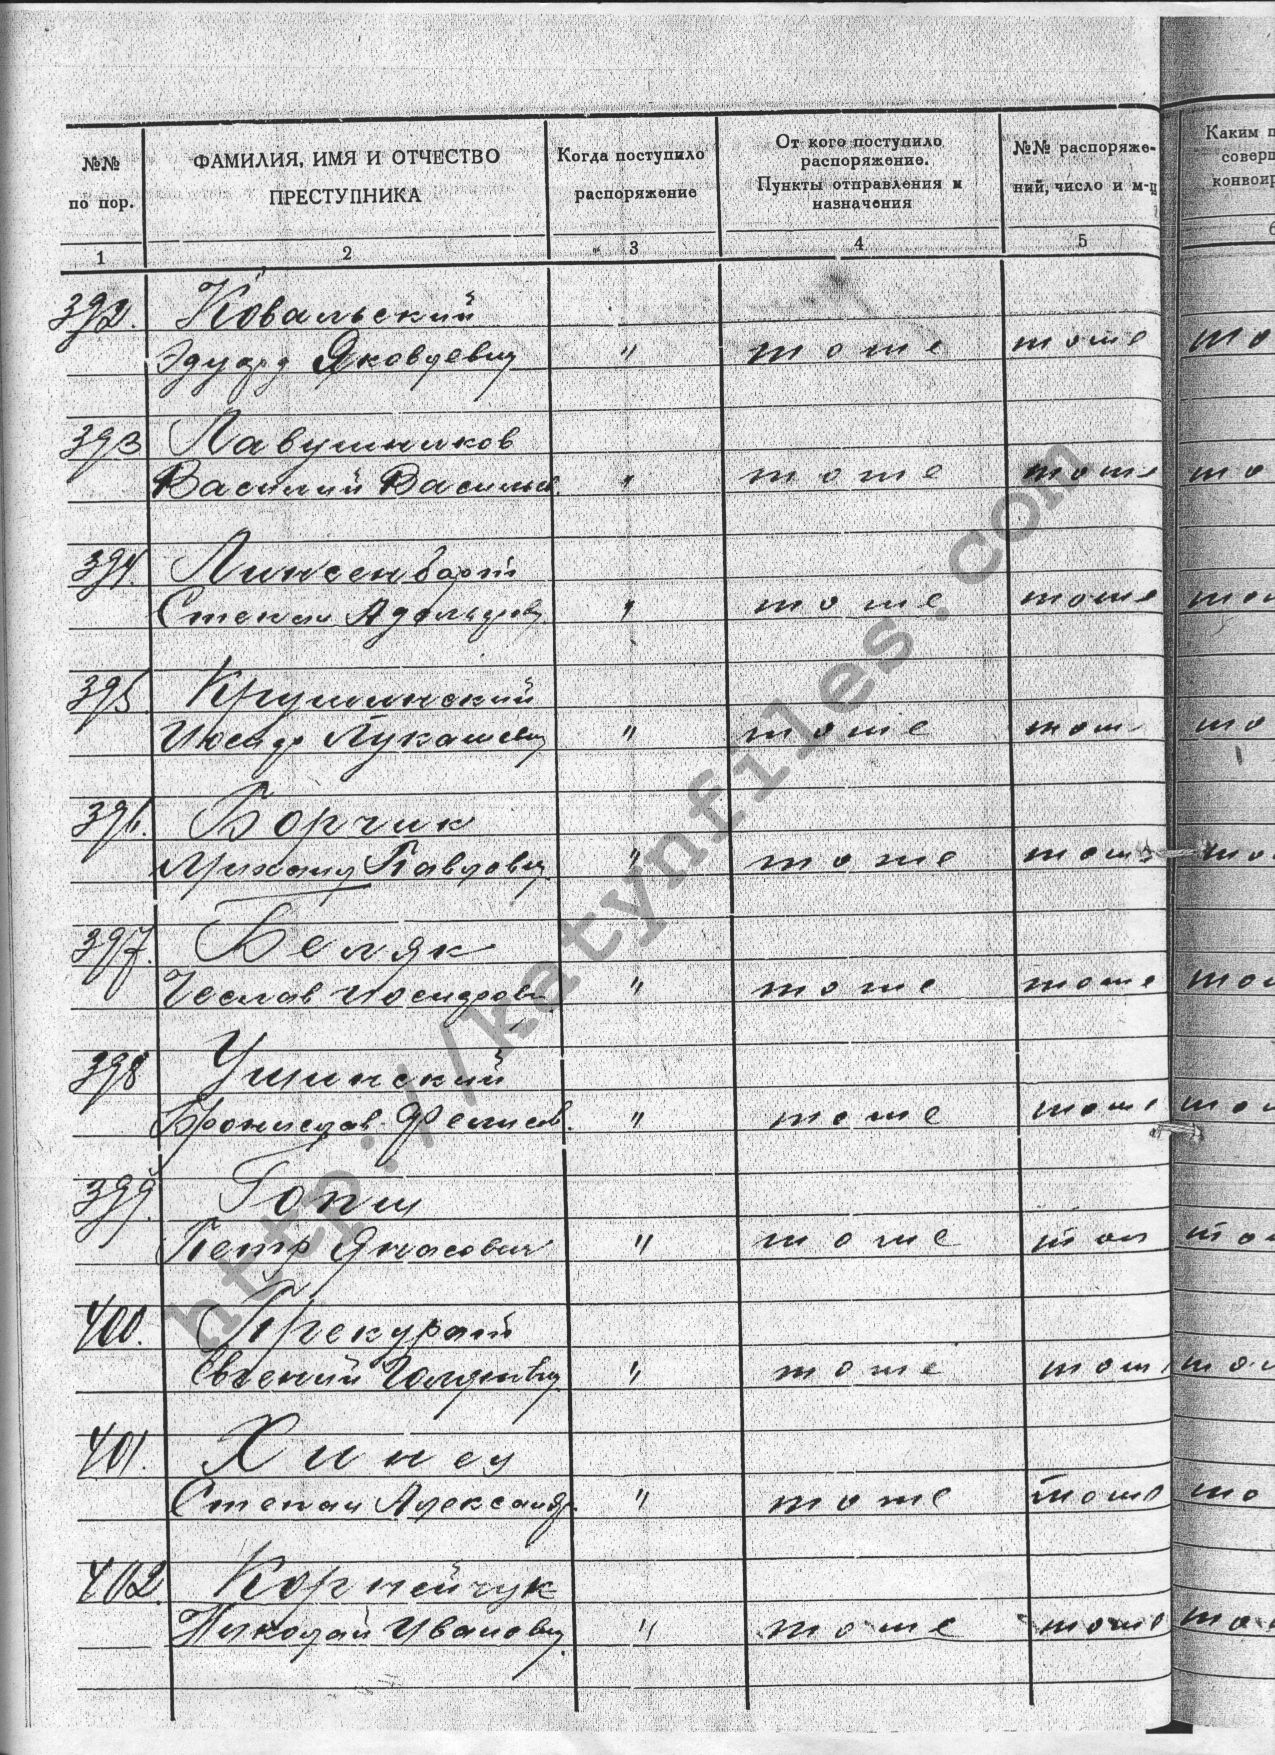 №№ по пор.
ФАМИЛИЯ, ИМЯ И ОТЧЕСТВО ПРЕСТУПНИКА
Когда поступило распоряжение
От кого поступило распоряжение. Пункты отправления и назначения
№№ распоряжений, число и м-ц
Каким п
соверш
конвоир
1 2 3 4 5 6
392. Ковальский
Эдуард Яковлевич " тоже тоже то
393 Лавушников
Василий Васильев. " тоже тоже то
394. Линсенбарт
Степан Адольфов. " тоже тоже то
395. Крушинский
Лукашевич " тоже то
396. Борчик
Михаил Павлович " тоже то
397. Беляк
Чеслав Иосифови " тоже тоже то
398 Ушинский
Бронислав Феликсов. " тоже то
399. Гопш
Петр " тоже то
400. Прекурат
Евгений " тоже то
401.
Степан Александр. " тоже тоже то
402. Корнейчук
Николай Иванович. " тоже тоже то
http://katynfiles.com